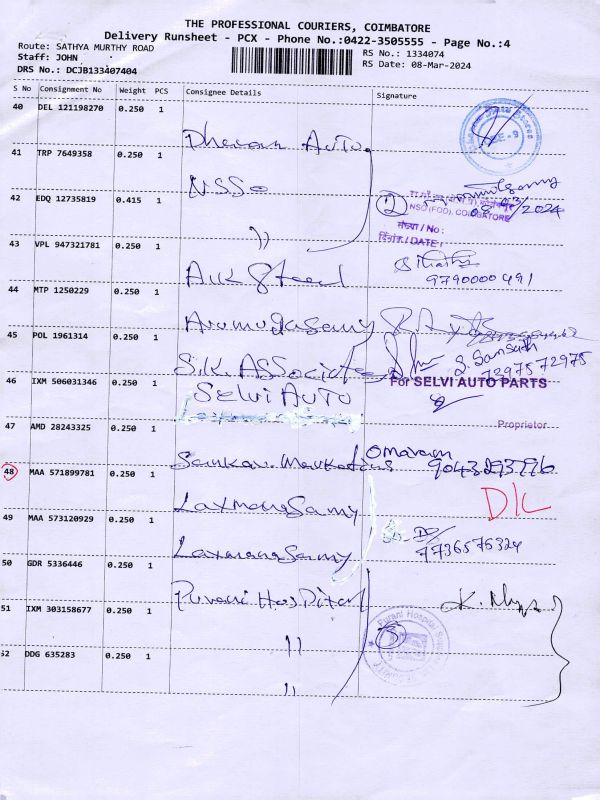 THE PROFESSIONAL COURIERS, COIMBATORE
Delivery Runsheet - PCX - Phone No.:0422-3505555 - Page No.:4
Route: SATHYA MURTHY ROAD
RS No.: 1334074
Staff: JOHN
RS Date: 08-Mar-2024
DRS No.: DCJB133407404
S No Consignment No Weight PCS Consignee Details Signature
40 DEL 121198270 0.250 1
Auto
41 TRP 7649358 0.250 1
NSSO
42 EDQ 12735819 0.415 1
2
NSO (FOD), COIMBATORE
संख्या / No :
दिनांक / DATE :
"
43 VPL 947321781 0.250 1
Steel
9790000491
44 MTP 1250229 0.250 1
Arumugasamy
45 POL 1961314 0.250 1
S.K. Associates
S. Sampath
7297572975
46 IXM 506031346 0.250 1
Selvi Auto
For SELVI AUTO PARTS
Proprietor
47 AMD 28243325 0.250 1
9043293796
48 MAA 571899781 0.250 1
Laxmanasamy
D/L
49 MAA 573120929 0.250 1
Laxmanasamy
7736575324
50 GDR 5336446 0.250 1
Purani Hospital
51 IXM 303158677 0.250 1
"
52 DDG 635283 0.250 1
"